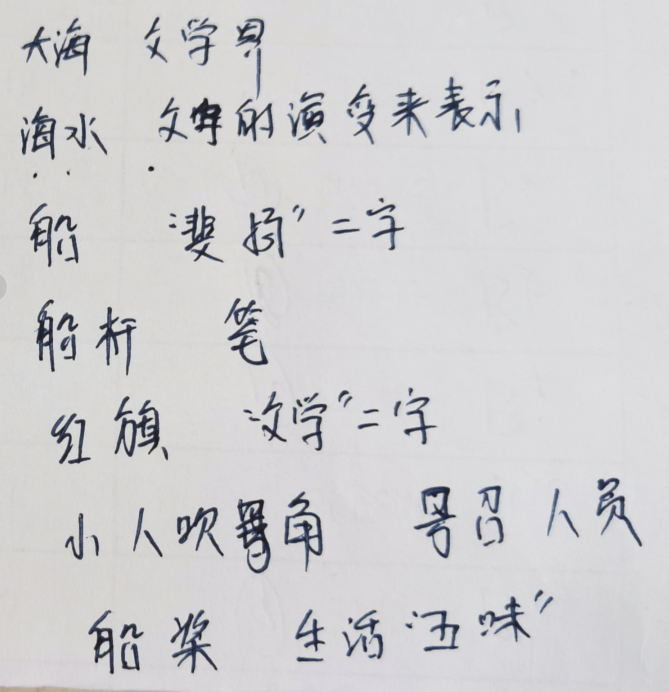 大海 文学界
海水 文字的演变来表示
船 "斐扬"二字
船杆 笔
红旗 "文学"二字
小人吹号角 号召人员
船桨 生活"五味"